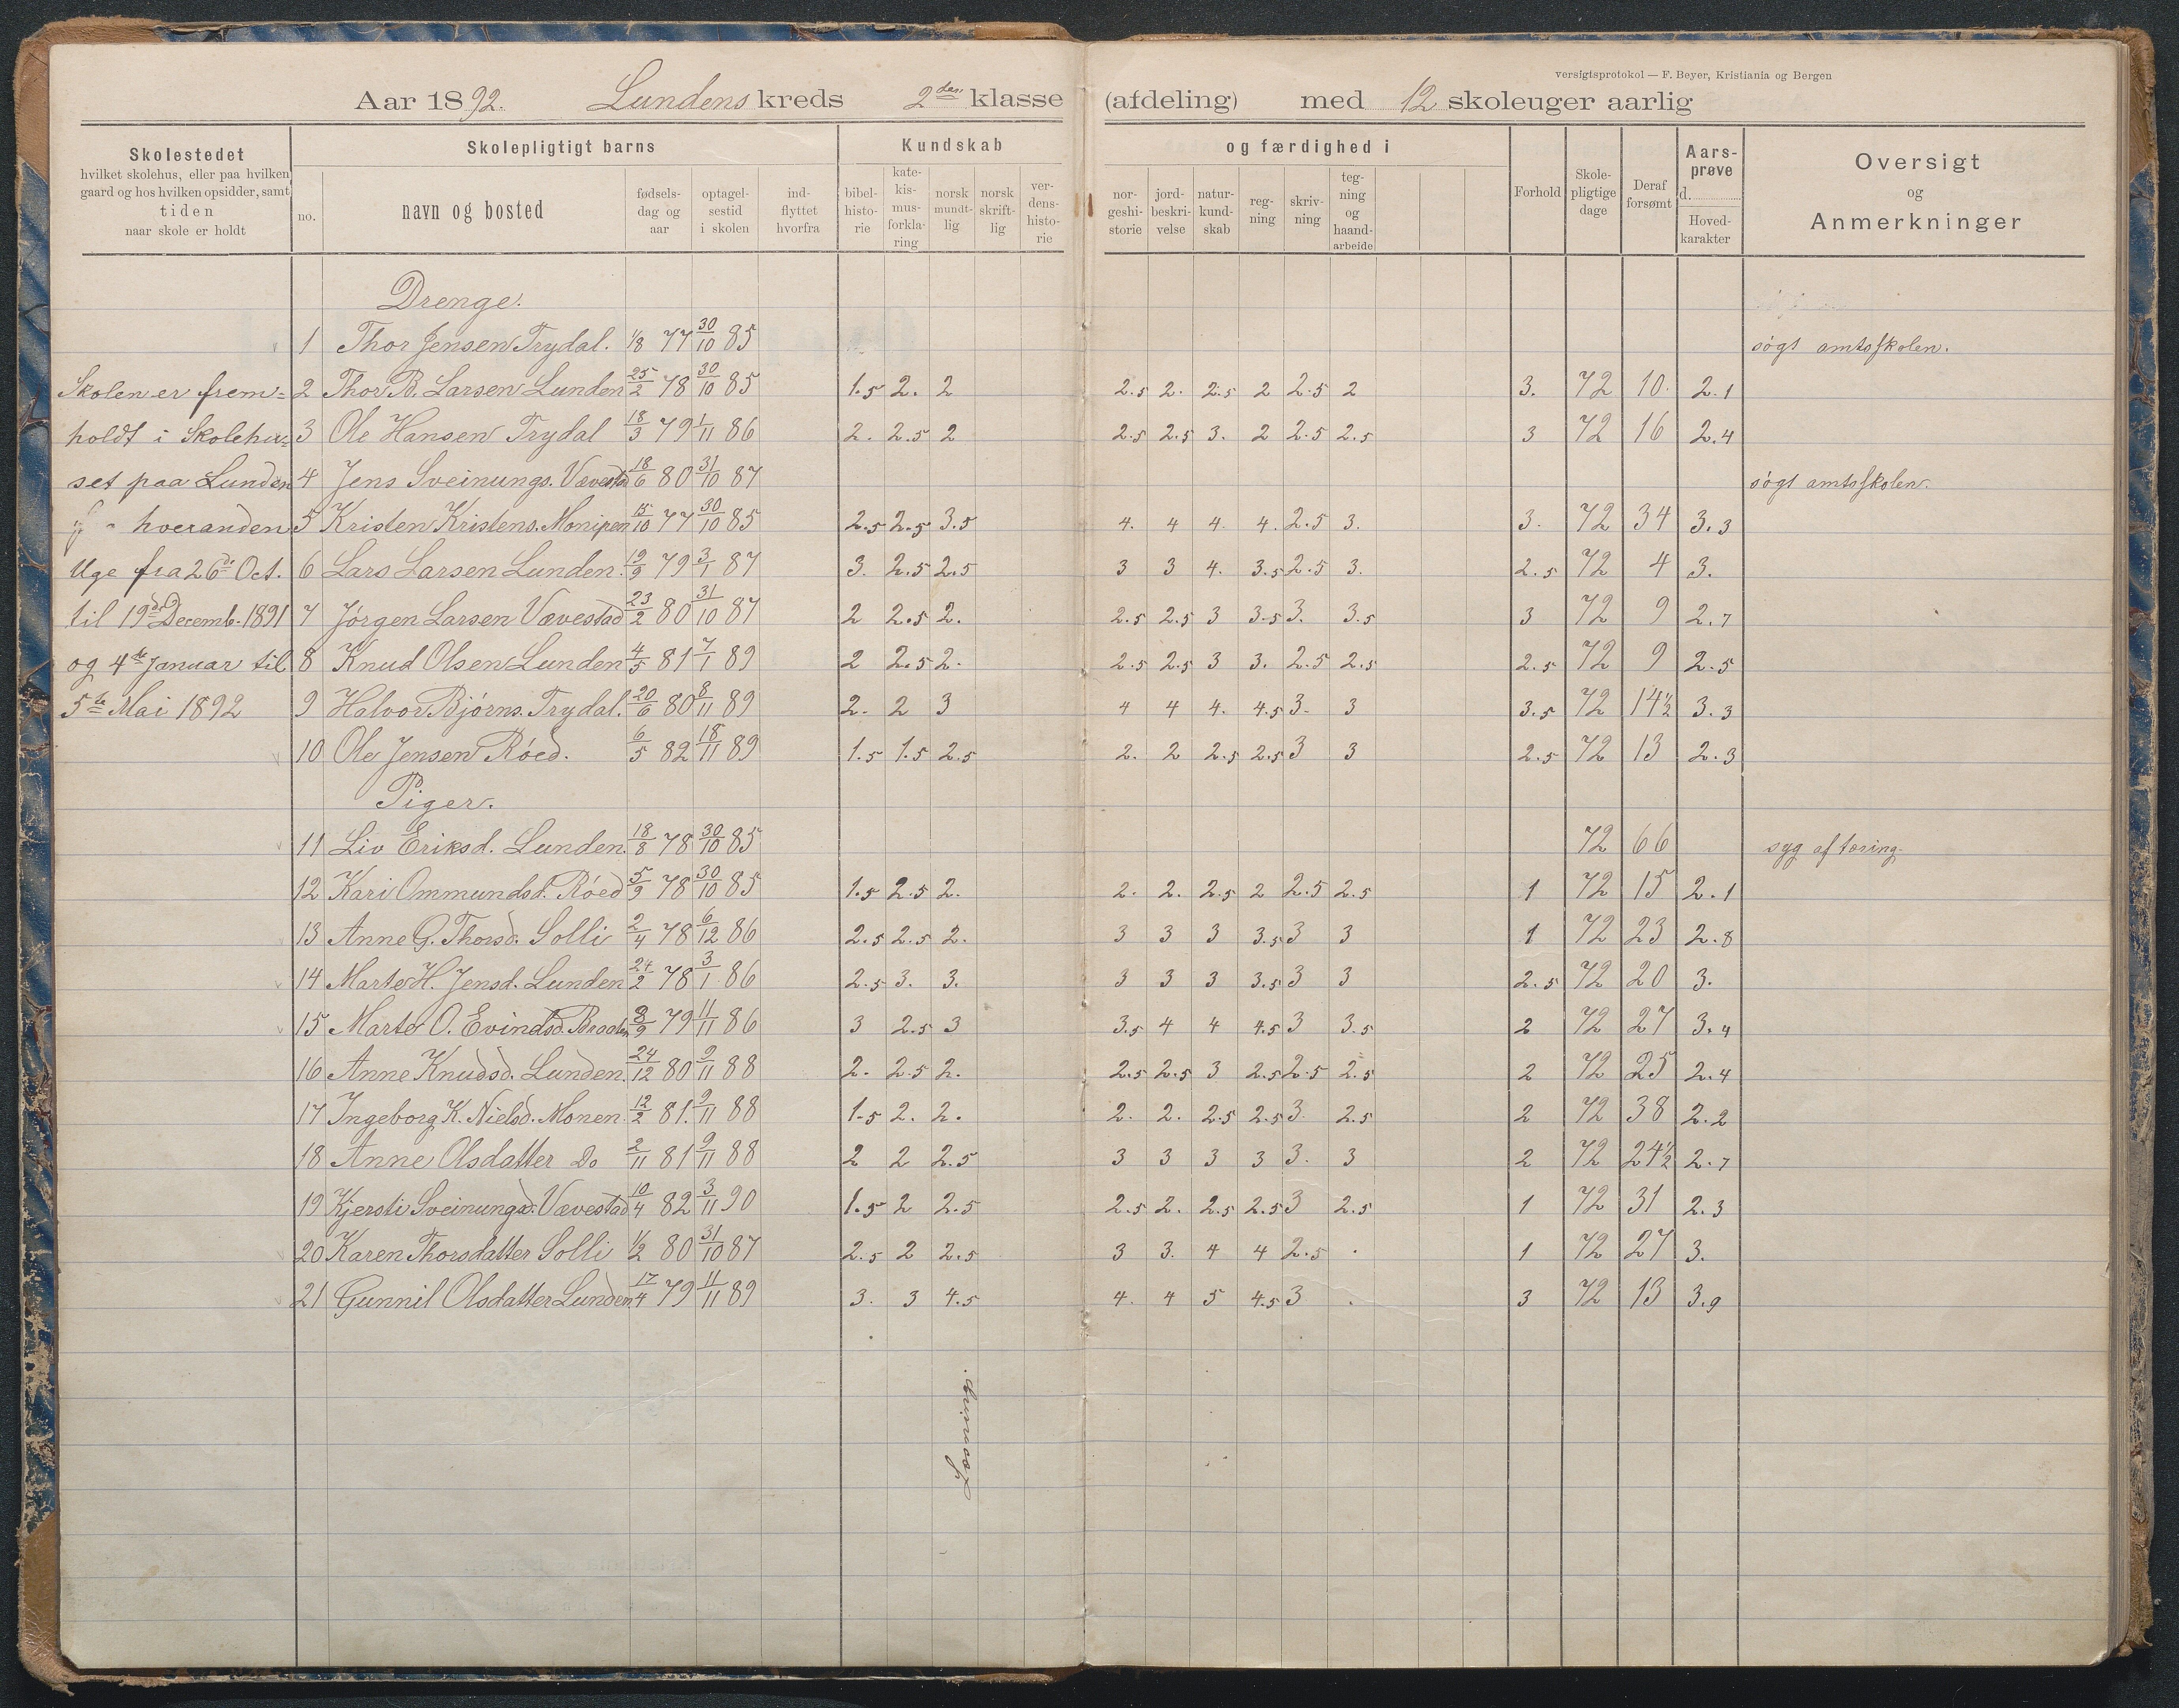 versigtsprotokol — F. Beyer, Kristiania og Bergen
Aar 1892. Lundens kreds 2den klasse (afdeling) med 12 skoleuger aarlig
Skolestedet
hvilket skolehus, eller paa hvilken
gaard og hos hvilken opsidder, samt
tiden
naar skole er holdt
Skolepligtigt barns
no.
navn og bosted
fødsels-
dag og
aar
optagel-
sestid
i skolen
ind-
flyttet
hvorfra
Kundskab
bibel-
histo-
rie
kate-
kis-
mus-
forkla-
ring
norsk
mundt-
lig
norsk
skrift-
lig
ver-
dens-
histo-
rie
og færdighed i
nor-
geshi-
storie
jord-
beskri-
velse
natur-
kund-
skab
reg-
ning
skriv-
ning
teg-
ning
og
haand-
arbeide
Forhold
Skole-
pligtige
dage
Deraf
forsømt
Aars-
prøve
d.
Hoved-
karakter
Oversigt
og
Anmerkninger
Drenge.
1 Thor Jensen Trydal. 1/8 77 30/10 85 søgt amtsskolen.
Skolen er frem= 2 Thor B. Larsen Lunden 25/2 78 30/10 85 1.5 2. 2 2.5 2. 2.5 2 2.5 2 3. 72 10. 2.1
holdt i Skolehu= 3 Ole Hansen Trydal 18/3 79 1/11 86 2. 2.5 2 2.5 2.5 3. 2 2.5 2.5 3 72 16 2.4
set paa Lunden 4 Jens Sveinungs. Vævestad 18/6 80 31/10 87 søgt amtsskolen.
hveranden 5 Kristen Kristens. 15/10 77 30/10 85 2.5 2.5 3.5 4. 4 4. 4. 2.5 3. 3. 72 34 3.3
Uge fra 26de Oct. 6 Lars Larsen Lunden. 19/9 79 3/1 87 3. 2.5 2.5 3 3 4. 3.5 2.5 3. 2.5 72 4 3.
til 19de Decemb. 1891 7 Jørgen Larsen Vævestad 23/2 80 31/10 87 2 2.5 2. 2.5 2.5 3 3.5 3. 3.5 3 72 9 2.7
og 4de Januar til 8 Knud Olsen Lunden 4/5 81 7/1 89 2 2.5 2. 2.5 2.5 3 3. 2.5 2.5 2.5 72 9 2.5
5te Mai 1892 9 Halvor Bjørns. Trydal. 20/6 80 8/11 89 2. 2 3 4 4 4. 4.5 3. 3 3.5 72 14½ 3.3
10 Ole Jensen Róed. 6/5 82 18/11 89 1.5 1.5 2.5 2. 2 2.5 2.5 3 3 2.5 72 13 2.3
Piger.
11 Liv Eriksd. Lunden. 18/8 78 30/10 85 72 66 syg af tæring.
12 Kari Ommundsd. Róed 5/9 78 30/10 85 1.5 2.5 2. 2. 2. 2.5 2 2.5 2.5 1 72 15 2.1
13 Anne G. Thorsd. Solli 2/4 78 6/12 86 2.5 2.5 2. 3 3 3 3.5 3 3 1 72 23 2.8
14 Marte H. Jensd. Lunden 24/2 78 3/1 86 2.5 3. 3. 3 3 3 3.5 3 3 2.5 72 20 3.
15 Marte O. Evindsd. 8/9 79 11/11 86 3 2.5 3 3.5 4 4 4.5 3 3.5 2 72 27 3.4
16 Anne Knudsd. Lunden. 24/12 80 9/11 88 2. 2.5 2. 2.5 2.5 3 2.5 2.5 2.5 2 72 25 2.4
17 Ingeborg K. Nielsd. Monen. 12/2 81. 9/11 88 1.5 2. 2. 2. 2. 2.5 2.5 3. 2.5 2 72 38 2.2
18 Anne Olsdatter Do 2/11 81 9/11 88 2 2 2.5 3 3 3 3 3. 3 2 72 24½ 2.7
19 Kjersti Sveinungsd. Vævestad 10/4 82 3/11 90 1.5 2 2.5 2.5 2. 2.5 2.5 3 2.5 1 72 31 2.3
20 Karen Thorsdatter Solli 1/2 80 31/10 87 2.5 2 2.5 3 3. 4 4 2.5 . 1 72 27 3.
21 Gunnil Olsdatter Lunden 17/4 79 11/11 89 3. 3 4.5 4. 4 5 4.5 3 . 3 72 13 3.9
Læsning.